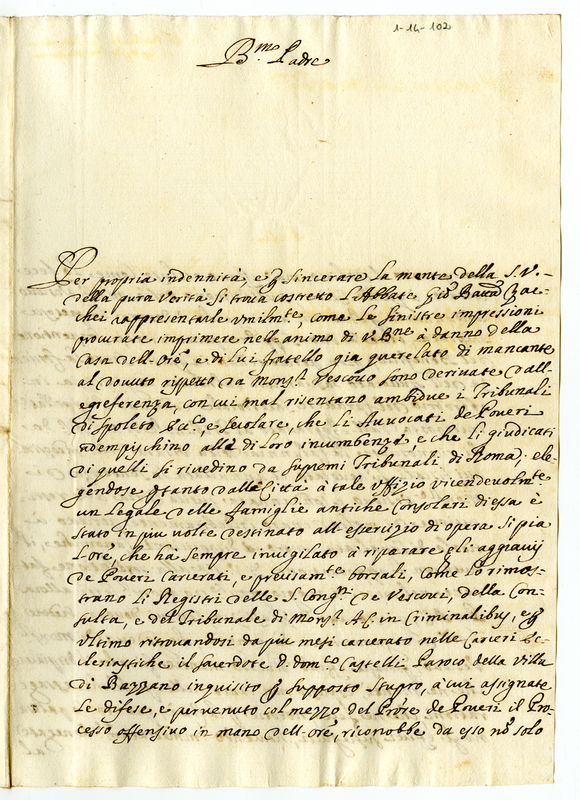 1-14-102
B.mo Padre
Per propria indennità, e p sincerare la mente della S.V.
della pura verità si troua costretto l'Abbate Gio Batta Zac-
chei rappresentarle umilm.te, come le sinistre impressioni
procurate imprimere nell'animo di V.B.ne à danno della
Casa dell'Ore, e di lui fratello già querelato di mancante
al douuto rispetto da Mons.r Vescouo sono deriuate dall'
egreferenza, con cui mal risentano ambidue i Tribunali
di Spoleto Ecc.co, e Secolare, che li Auuocati de Poueri
adempischino alla di loro incumbenza, e che li giudicati
di quelli si riuedino da supremi Tribunali di Roma; ele-
gendose p tanto dalla Città à tale uffizio vicendeuolm.te
un Legale delle famiglie antiche Consolari di essa è
stato in piu volte destinato all'essercizio di opera si pia
l'Ore, che hà sempre inuigilato à riparare gli aggrauij
de Poueri Carcerati, e precisam.te borsali, come lo rimos-
trano li Registri delle S. Cong.ni de Vescoui, della Con-
sulta, e del Tribunale di Mons.r A.C. in Criminalibus, e p
ultimo ritrouandosi da piu mesi carcerato nelle Carceri Ec-
clesiastiche il Sacerdote D. Dom.co Castelli Paroco della Villa
di Bazzano inquisito p supposto stupro, à cui assignate
le difese, e peruenuto col mezzo del Prore de Poueri il Pro-
cesso offensiuo in mano dell'Ore, riconobbe da esso nō solo